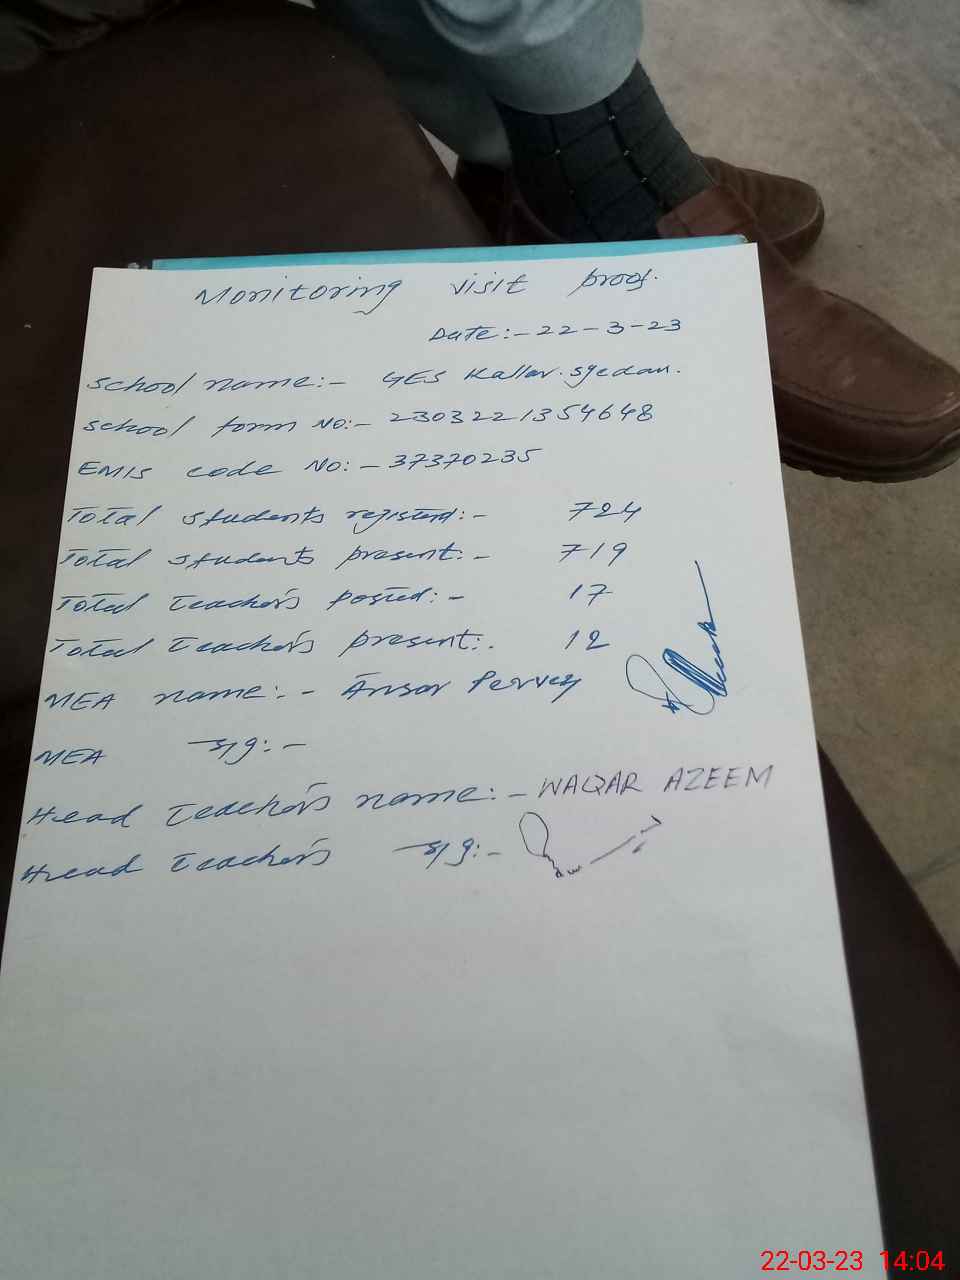 Monitoring visit proof.
Date:- 22-3-23
School name:- GES Kallar.syedan.
School form No:- 2303221354648
EMIS code No:- 37370235
Total students registerd:- 724
Total students present:- 719
Total teacher's posted:- 17
Total teacher's present:. 12
MEA name:- Ansar Pervez
MEA sig:-
Head teacher's name:- WAQAR AZEEM
Head teacher's sig:-
22-03-23 14:04